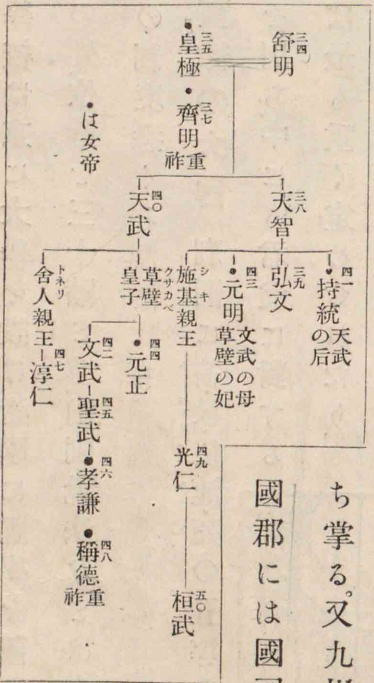 三四 舒明
三五 ●皇極
三七 ●齊明 重祚
●は女帝
三八 天智
四〇 天武
四一 ●持統 天武の后
三九 弘文
四三 ●元明 文武の母 草壁の妃
施基親王 シキ
草壁皇子 クサカベ
舍人親王 トネリ
四七 淳仁
四四 ●元正
四二 文武
四五 聖武
四六 ●孝謙
四八 ●稱德 重祚
四九 光仁
五〇 桓武
ち掌る。又九
國郡には國